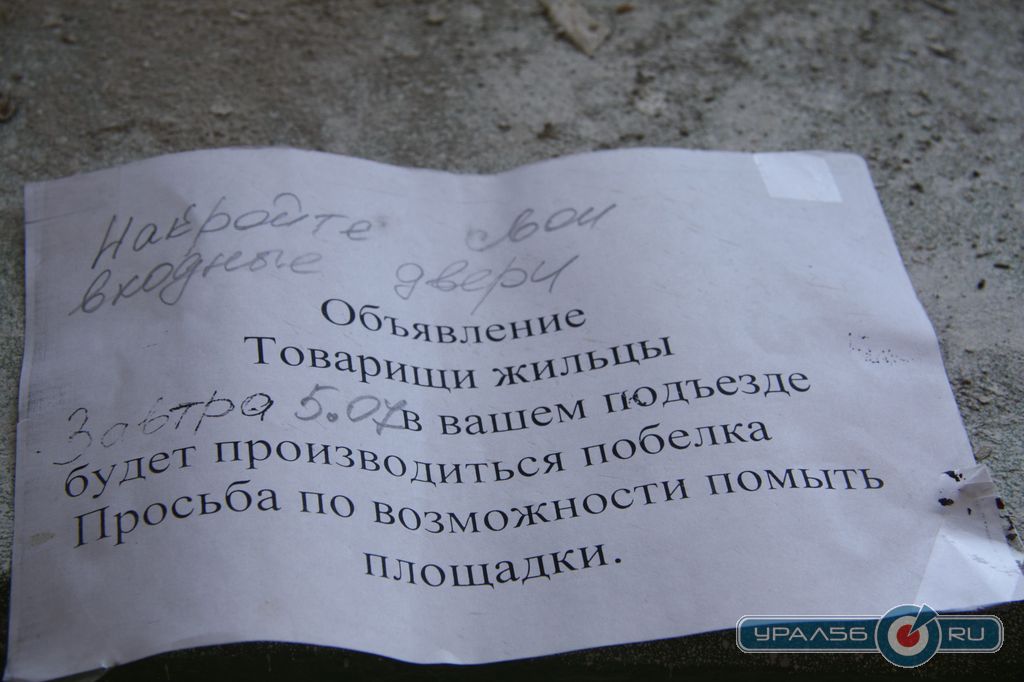 Накройте свои
входные двери
Объявление
Товарищи жильцы
Завтра 5.07 в вашем подъезде
будет производиться побелка
Просьба по возможности помыть
площадки.
УРАЛ56 RU